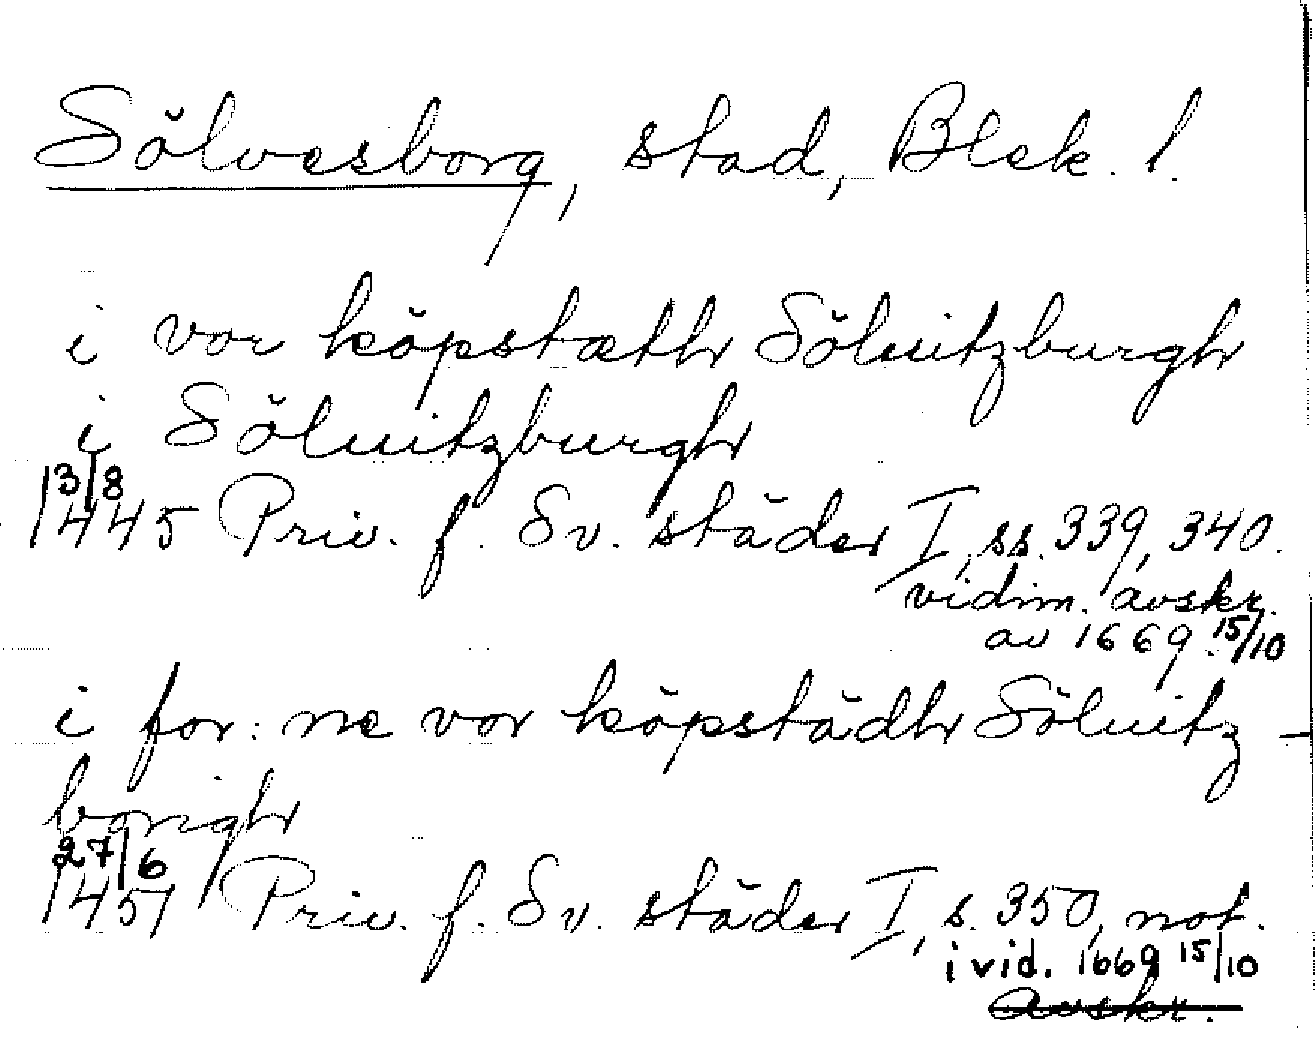 Sölvesborg, stad, Blek. l.
i vor köpstæth Söluitzburgh
i Söluitzburgh
13/8
1445 Priv. f. Sv. städer I, ss. 339, 340.
vidim. avskr.
av 1669 15/10
i for: ne vor köpstädh Söluitz-
borigh
27/6
1451 Priv. f. Sv. städer I, s. 350, not.
i vid. 1669 15/10
avskr.